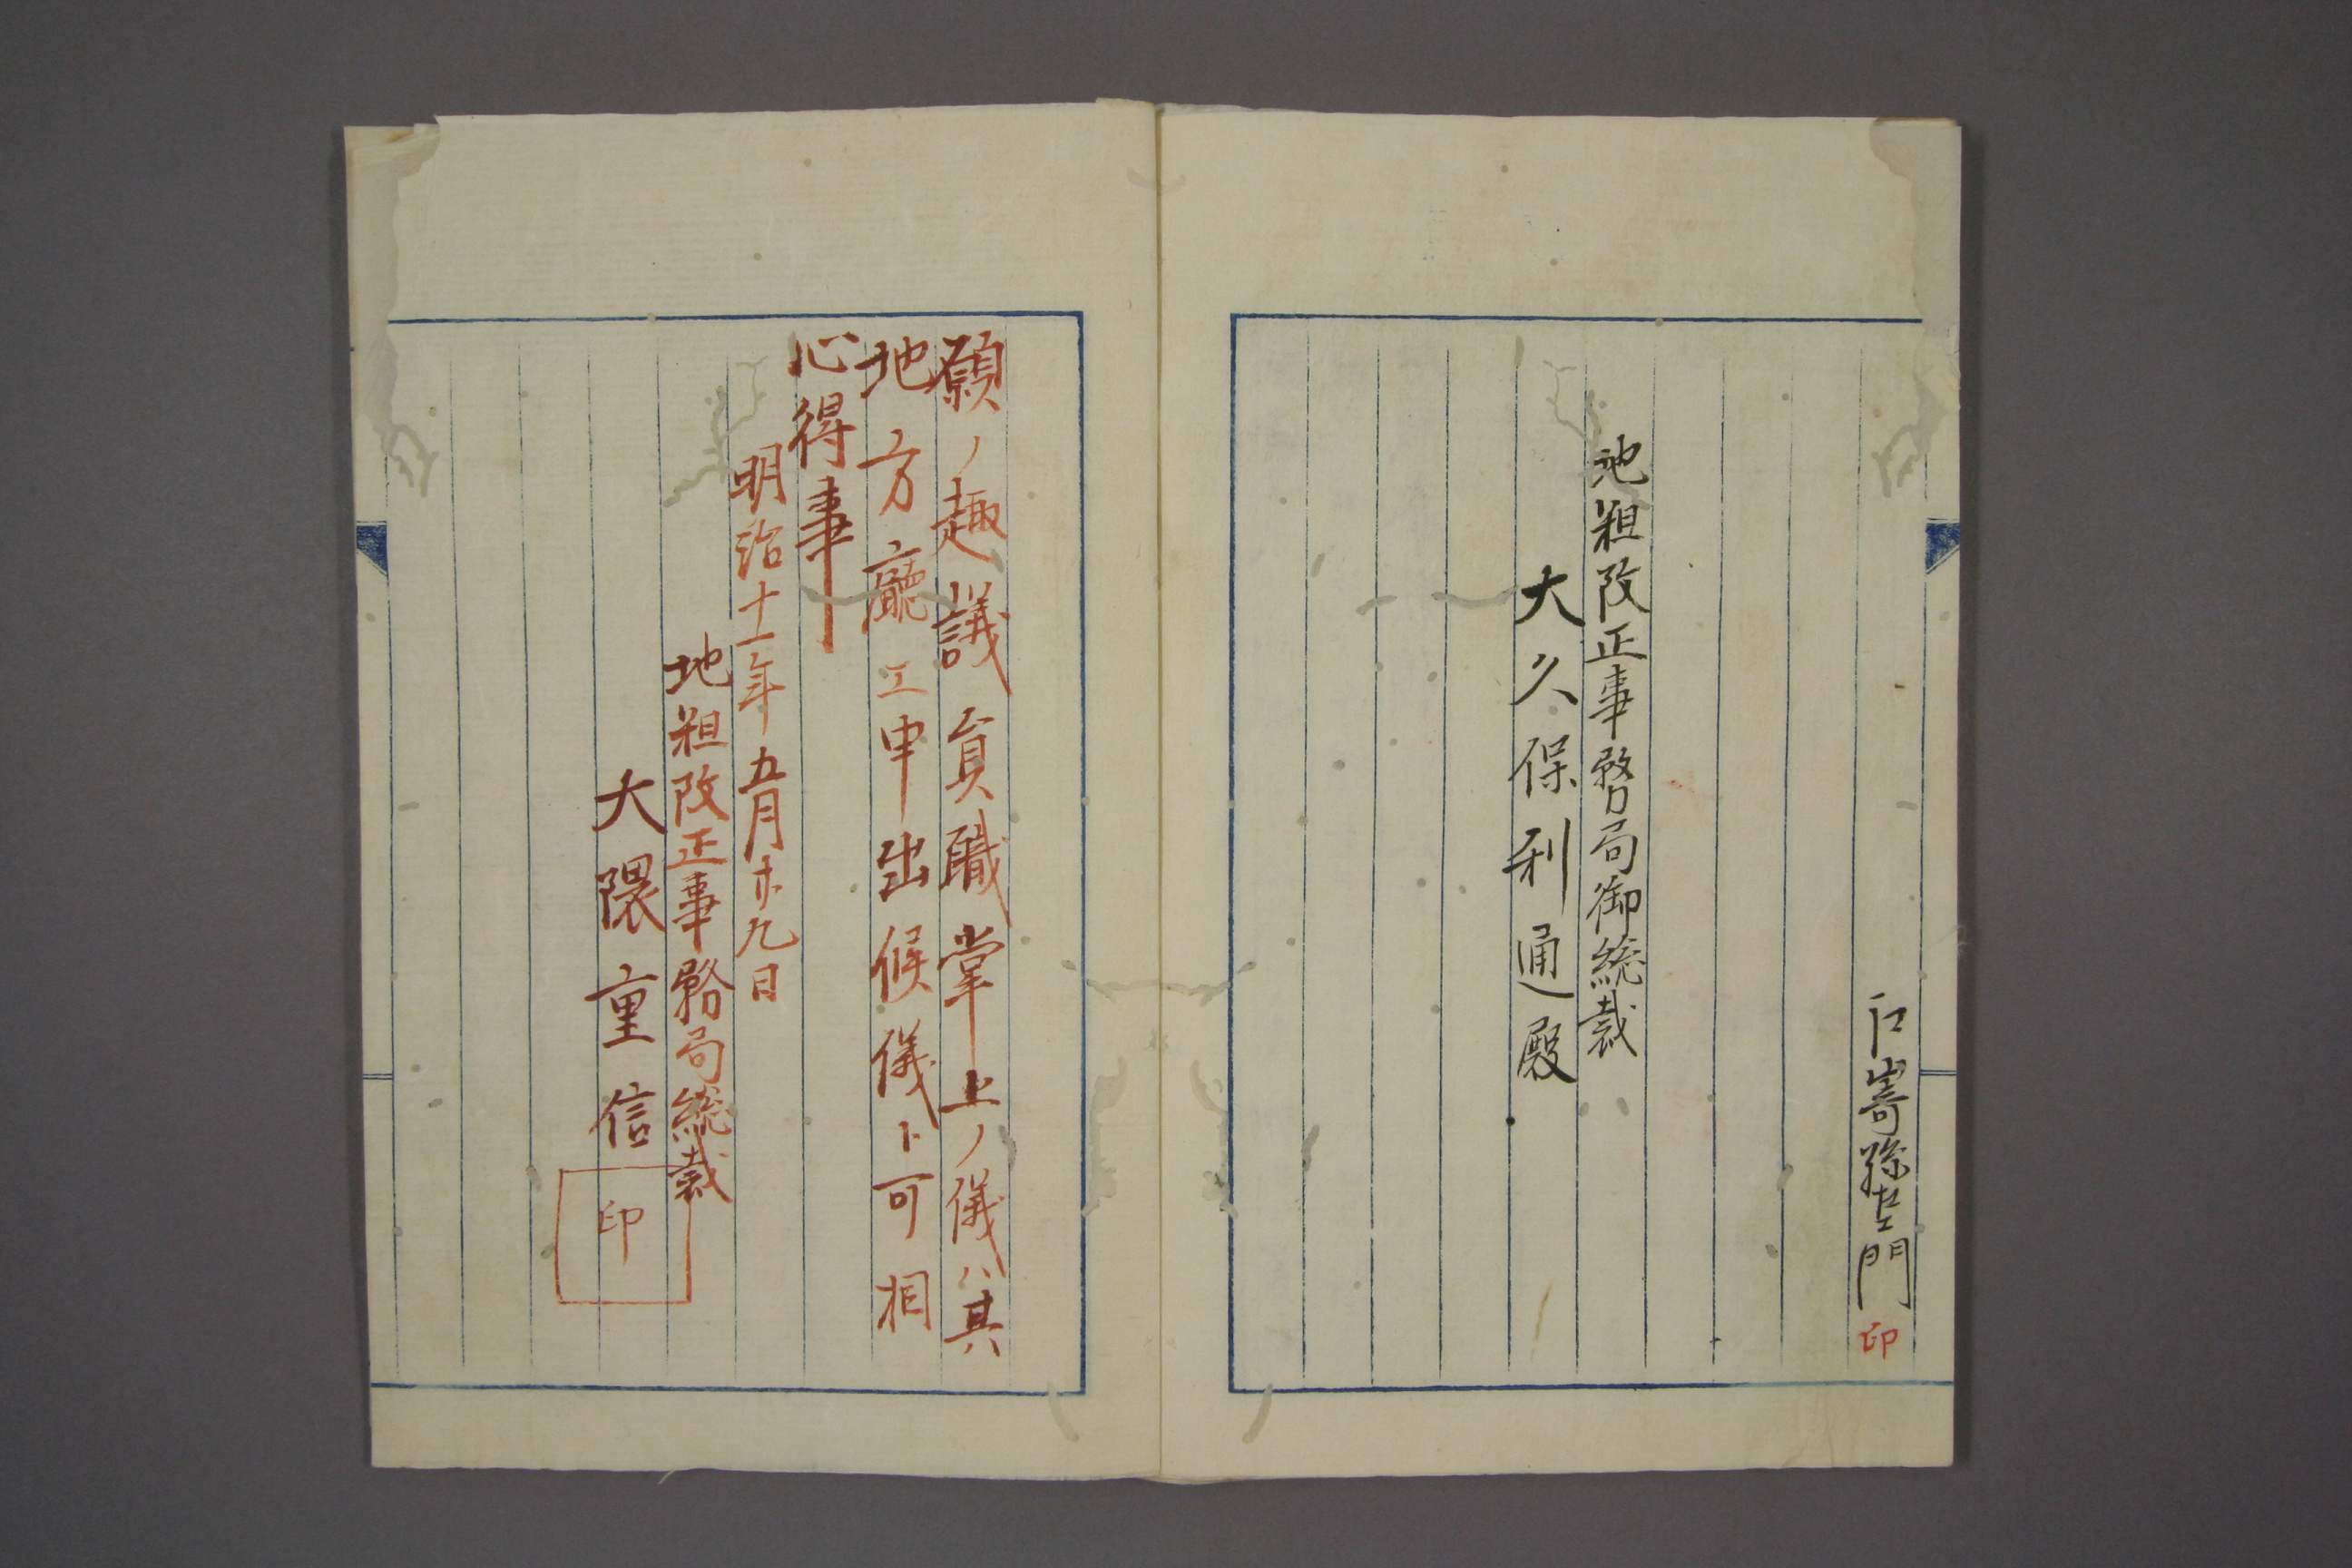 戸嵜孫左エ門 印
地租改正事務局御總裁
大久保利通殿
願ノ趣議員職掌上ノ儀ハ其
地方廳エ申出候儀ト可相
心得事
明治十一年五月廿九日
地租改正事務局総裁
大隈重信 印